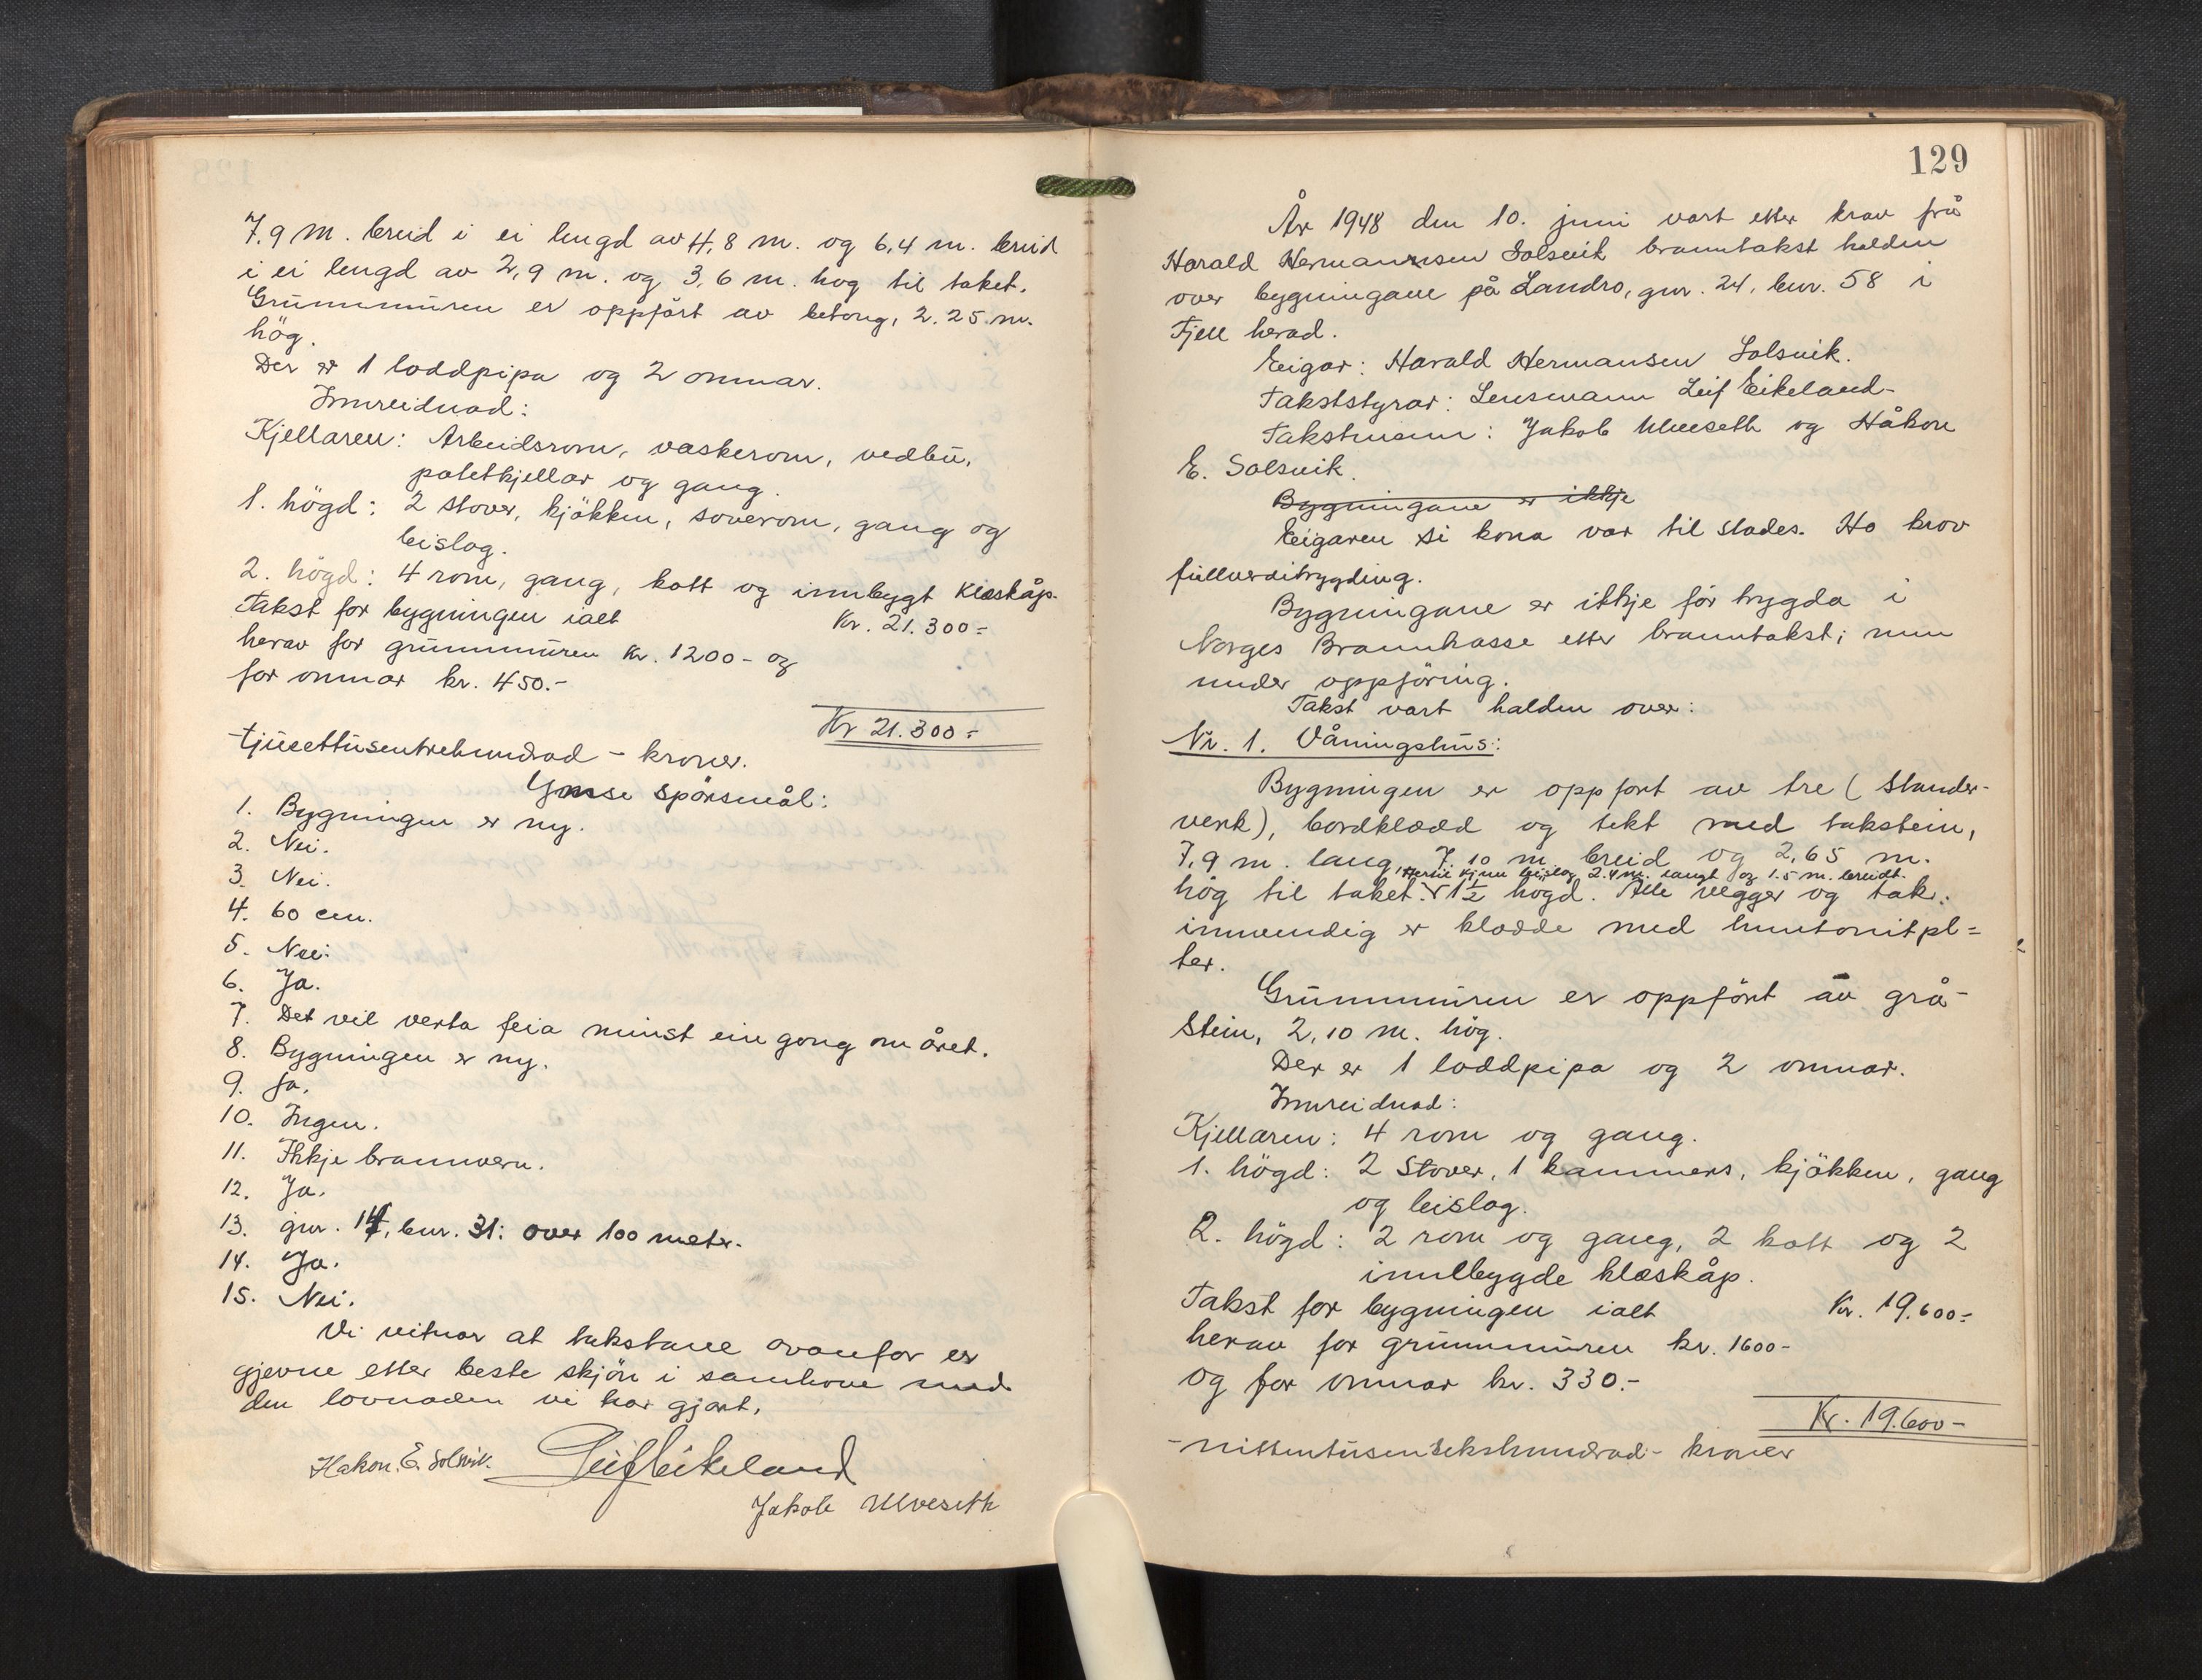 7,9 m. breid i ei lengd av 4,8 m. og 6,4 m. breid
i ei lengd av 2,9 m. og 3,6 m. høg til taket.
Grunnmuren er oppført av betong, 2.25 m.
høg.
Der er 1 loddpipa og 2 omnar.
Innreidnad:
Kjellaren: Arbeidsrom, vaskerom, vedbu,
potetkjellar og gang.
1. högd: 2 stover, kjökken, soverom, gang og
bislag.
2. högd: 4 rom, gang, kott og innbygt klæskåp.
Takst for bygningen ialt Kr. 21.300=
herav for grunnmuren kr. 1200- og
for omnar kr. 450.-
Kr 21.300=
-tjueettusentrehundrad - kroner.
Ymse spörsmål:
1. Bygningen er ny.
2. Nei.
3. Nei.
4. 60 cm.
5. Nei.
6. Ja.
7. Det vil verta feia minst ein gong om året.
8. Bygningen er ny.
9. Ja.
10. Ingen.
11. Ikkje brannvern.
12. Ja.
13. gnr. 14, bnr. 31: over 100 meter.
14. Ja.
15. Nei.
Vi vitnar at takstane ovanfor er
gjevne etter beste skjön i samhøve med
den lovnaden vi har gjort.
Hakon. E. Solsvik. Leif Eikeland
Jakob Ulveseth
129
År 1948 den 10. juni vart etter krav frå
Harald Hermannsen Solsvik branntakst halden
over bygningane på Landro, gnr. 24, bnr. 58 i
Fjell herad.
Eigar: Harald Hermansen Solsvik.
Takststyrar: Lensmann Leif Eikeland-
Takstmenn: Jakob Ulveseth og Håkon
E. Solsvik.
Bygningane er ikkje
Eigaren si kona var til stades. Ho krov
fullverditrygding.
Bygningane er ikkje för trygda i
Norges Brannkasse etter branntakst; men
under oppföring.
Takst vart halden over:
Nr. 1. Våningshus:
Bygningen er oppført av tre (stander-
verk), bordklædd og tekt med takstein,
7,9 m. lang, 7,10 m. breid og 2,65 m.
bislag 2.4 m. langt og 1.5 m. breidt.
hög til taket. 1½ högd. Alle vegger og tak
innvendig er klædde med huntonitpl=
ter.
Grunnmuren er oppfört av grå-
stein, 2,10 m. hög.
Der er 1 loddpipa og 2 omnar.
Innreidnad:
Kjellaren: 4 rom og gang.
1. högd: 2 stover, 1 kammers, kjökken, gang
og bislag.
2. högd: 2 rom og gang, 2 kott og 2
innbygde klæskåp.
Takst for bygningen ialt Kr. 19.600=
herav for grunnmuren kr. 1600-
og for omnar kr. 330.-
Kr. 19.600-
-nittentusensekshundrad- kroner